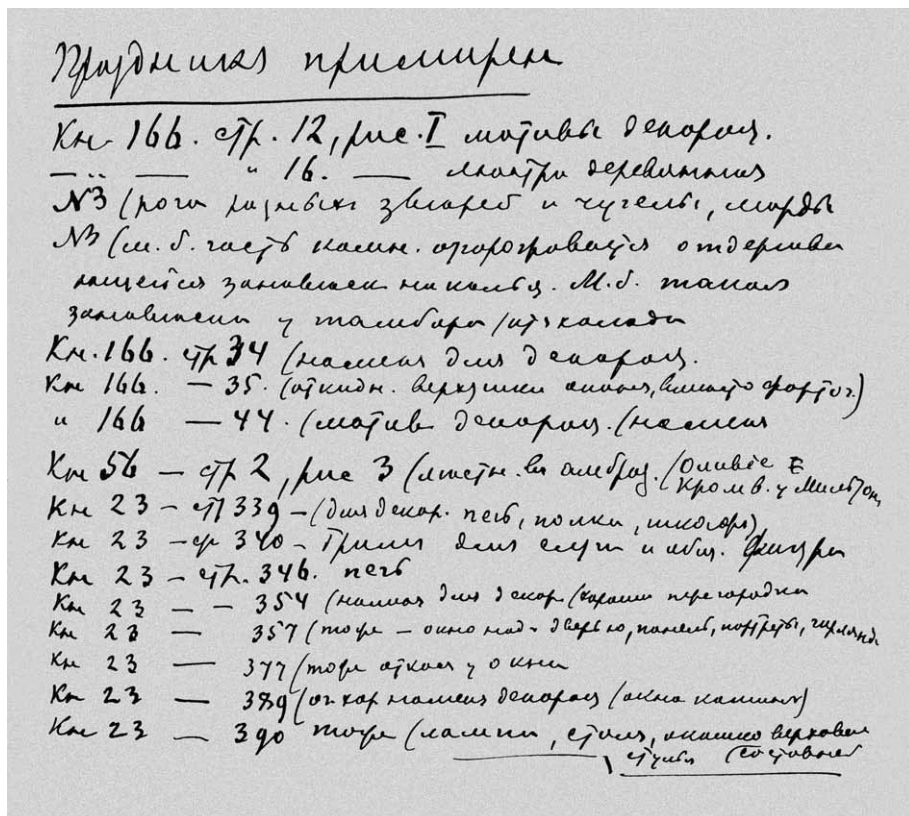 Праздника примирен
Кн. 166. стр. 12, рис. I мотивы декорац.
— " — " 16. — люстра деревянная
N3 (рога разных зверей и чучелы, морды
N3 (м. б. часть комн. отдергива
ющейся занавеск на кольц. М.б. такая
занавески у тамбура
Кн. 166. стр 34 (намек для декорац.
Кн 166. — 35. (откидн. верхушки окна, вместо форточ.)
" 166 — 44. (мотив декорац. (намек
Кн 56 — стр 2, рис 3 (лестн. в амбраз. (Оливье Е
Кромв. у Мильтон
Кн 23 — ст 339 — (для декор. печь, полки,
Кн 23 — ср 340 — Грим для слуг и фигуры
Кн 23 — стр. 346. печь
Кн 23 — — 354 (намек для декор (хороши перегородки
Кн 23 — 357 (тоже — окно над дверью, панель, портреты, гирлянд
Кн 23 — 377 (тоже откос у окна
Кн 23 — 389 (оч хор намек декорац (окна
Кн 23 — 390 тоже (лампы, столы, окошко верховое
стулья